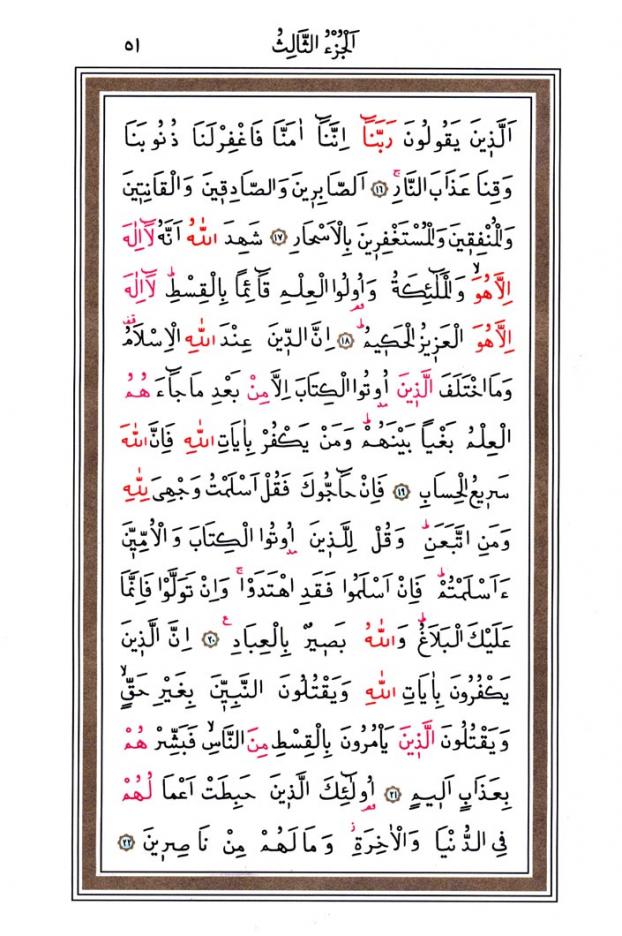 اَلْجُزْءُ الثَّالِثُ ٥١
اَلَّذٖينَ يَقُولُونَ رَبَّنَٓا اِنَّنَٓا اٰمَنَّا فَاغْفِرْلَنَا ذُنُوبَنَا
وَقِنَا عَذَابَ النَّارِۚ ١٦ اَلصَّابِرٖينَ وَالصَّادِقٖينَ وَالْقَانِتٖينَ
وَالْمُنْفِقٖينَ وَالْمُسْتَغْفِرٖينَ بِالْاَسْحَارِ ١٧ شَهِدَ اللّٰهُ اَنَّهُ لَٓا اِلٰهَ
اِلَّا هُوَۙ وَالْمَلٰٓئِكَةُ وَاُولُوا الْعِلْمِ قَٓائِمًا بِالْقِسْطِۜ لَٓا اِلٰهَ
اِلَّا هُوَ الْعَزٖيزُ الْحَكٖيمُۜ ١٨ اِنَّ الدّٖينَ عِنْدَ اللّٰهِ الْاِسْلَامُ۠
وَمَا اخْتَلَفَ الَّذٖينَ اُوتُوا الْكِتَابَ اِلَّا مِنْ بَعْدِ مَا جَٓاءَ هُمُ
الْعِلْمُ بَغْيًا بَيْنَهُمْۜ وَمَنْ يَكْفُرْ بِاٰيَاتِ اللّٰهِ فَاِنَّ اللّٰهَ
سَرٖيعُ الْحِسَابِ ١٩ فَاِنْ حَٓاجُّوكَ فَقُلْ اَسْلَمْتُ وَجْهِيَ لِلّٰهِ
وَمَنِ اتَّبَعَنِۜ وَقُلْ لِلَّذٖينَ اُوتُوا الْكِتَابَ وَالْاُمِّيّٖنَ
ءَاَسْلَمْتُمْۜ فَاِنْ اَسْلَمُوا فَقَدِ اهْتَدَوْاۚ وَاِنْ تَوَلَّوْا فَاِنَّمَا
عَلَيْكَ الْبَلَاغُۜ وَاللّٰهُ بَصٖيرٌ بِالْعِبَادِ ع ٢٠ اِنَّ الَّذٖينَ
يَكْفُرُونَ بِاٰيَاتِ اللّٰهِ وَيَقْتُلُونَ النَّبِيّٖنَ بِغَيْرِ حَقٍّۙ
وَيَقْتُلُونَ الَّذٖينَ يَأْمُرُونَ بِالْقِسْطِ مِنَ النَّاسِۙ فَبَشِّرْ هُمْ
بِعَذَابٍ اَلٖيمٍ ٢١ اُولٰٓئِكَ الَّذٖينَ حَبِطَتْ اَعْمَا لُهُمْ
فِي الدُّنْيَا وَالْاٰخِرَةِۘ وَمَا لَهُمْ مِنْ نَاصِرٖينَ ٢٢